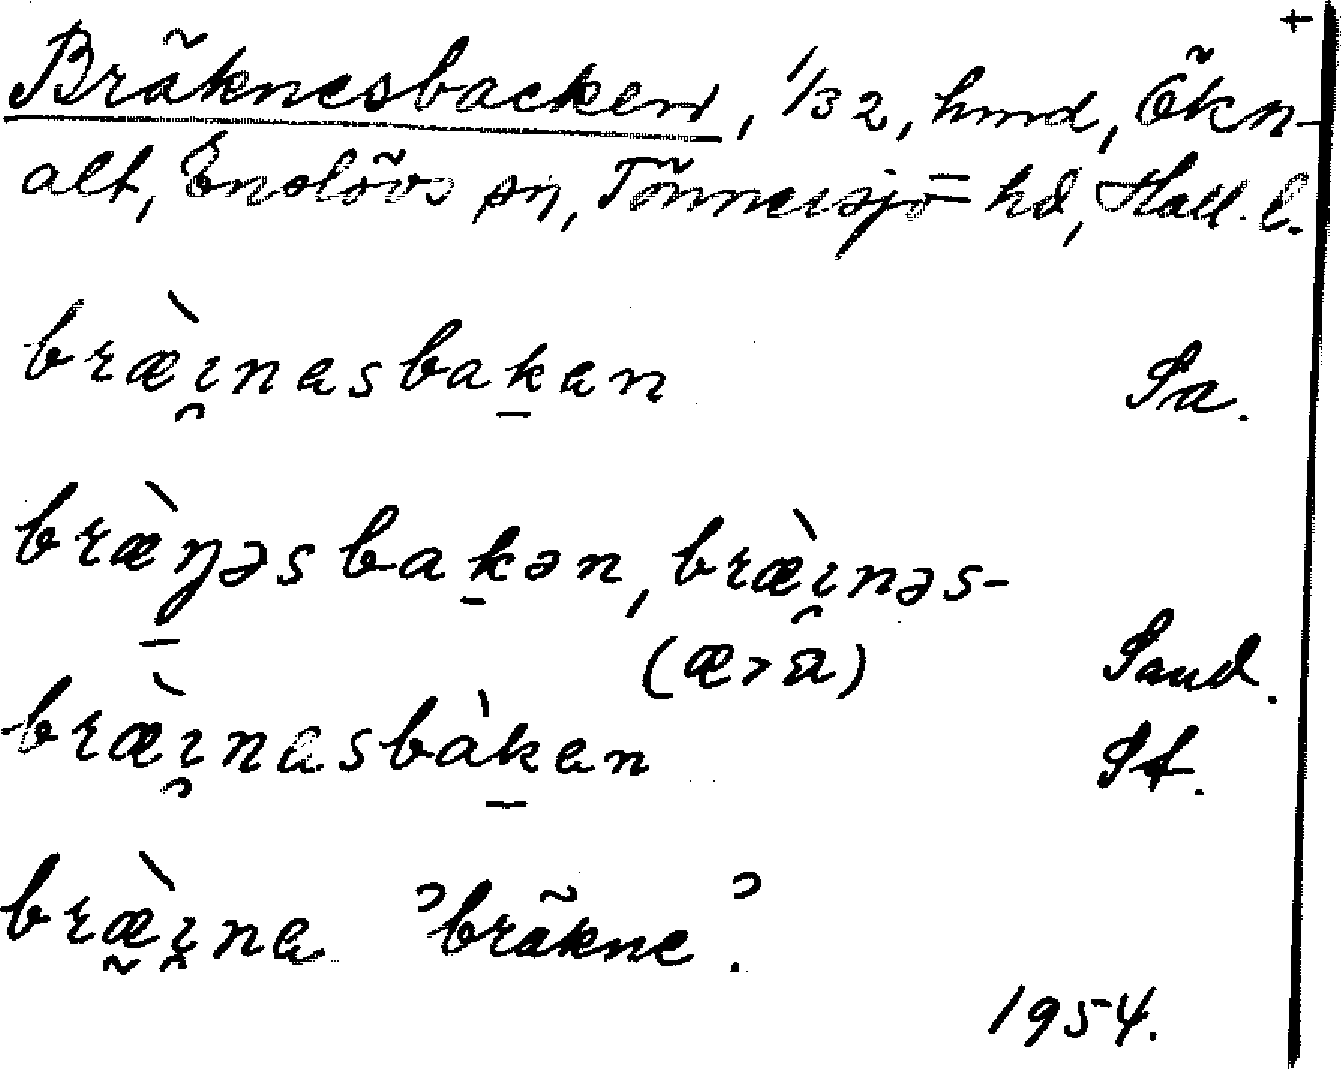 +
Bräknesbacken, 1/32, hmd, Ökn-
alt, Enslövs sn, Tönnersjö hd, Hall. l.
bræ̀ı̯nasbaḵan Sa.
bræ̀ŋ̱əsbaḵən, bræ̀ı̯nəs-
(æ>a) Sand.
bræ̀ı̯nasbàḵan St.
bræ̰̀ı̯na 'bräkne'.
1954.